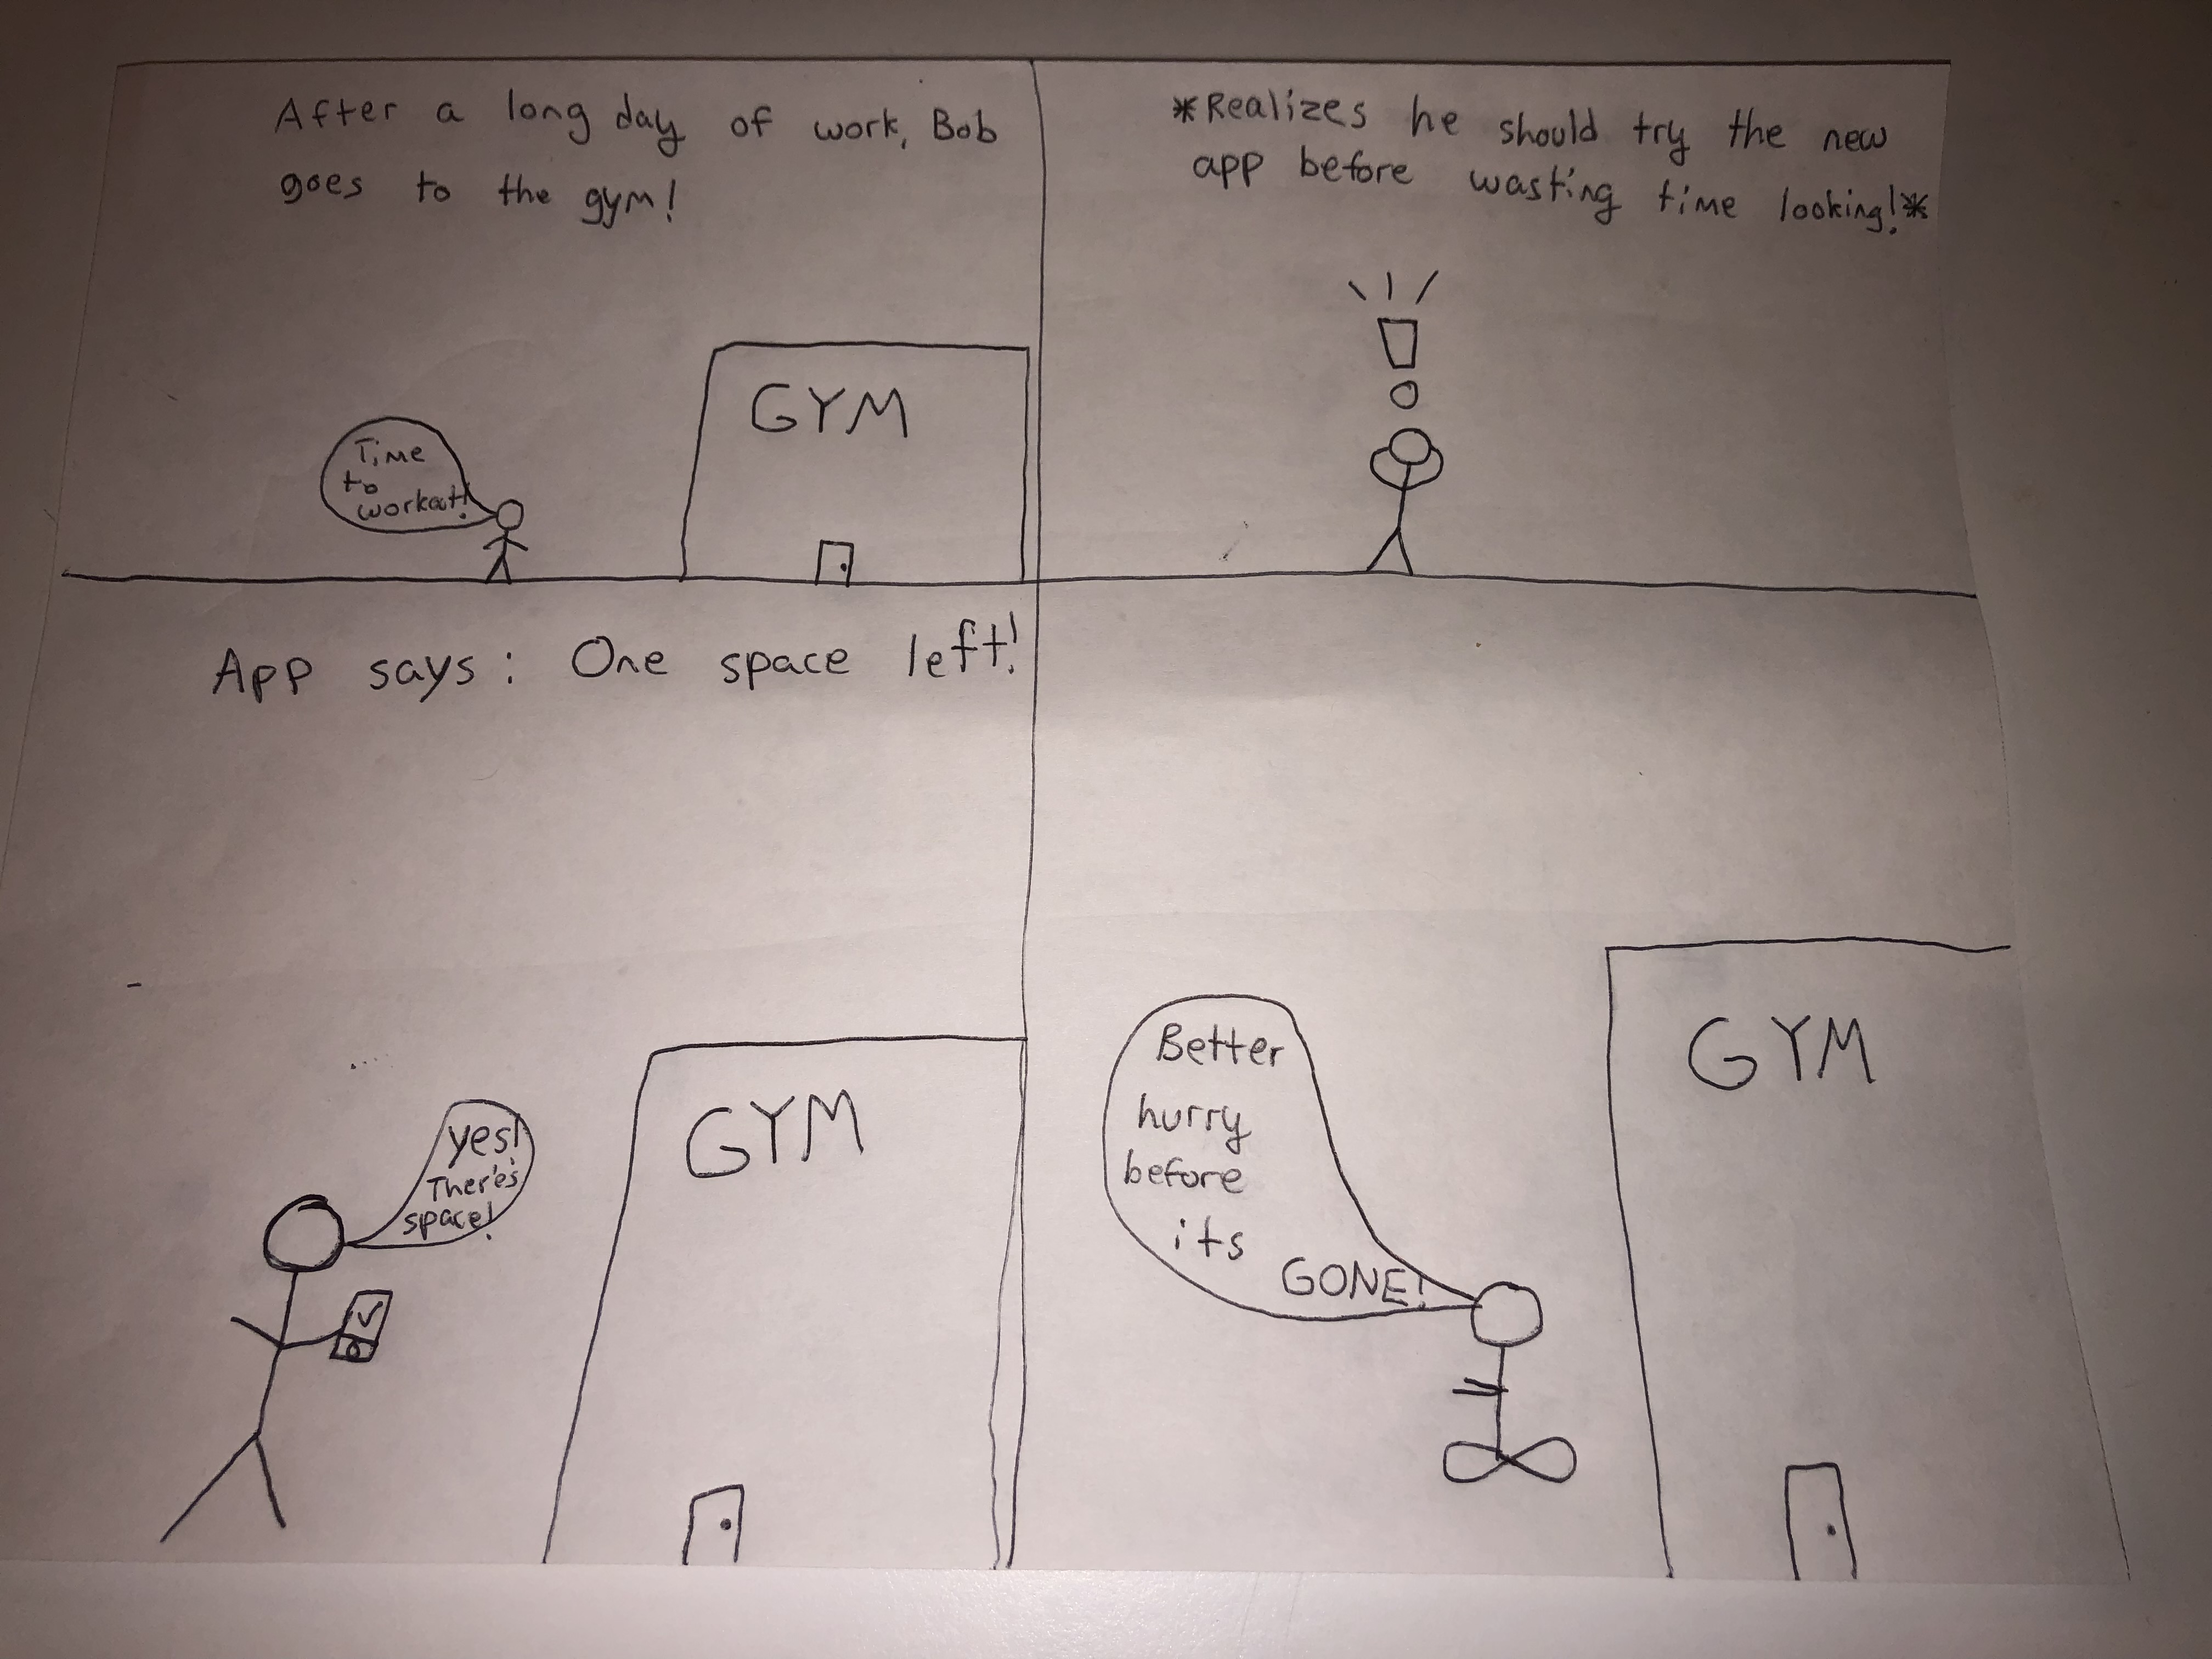 After a long day of work, Bob
goes to the gym!
Time
to
workout!
GYM
*Realizes he should try the new
app before wasting time looking!*
!
App says: One space left!
yes!
There's
space!
GYM
Better
hurry
before
its
GONE!
GYM